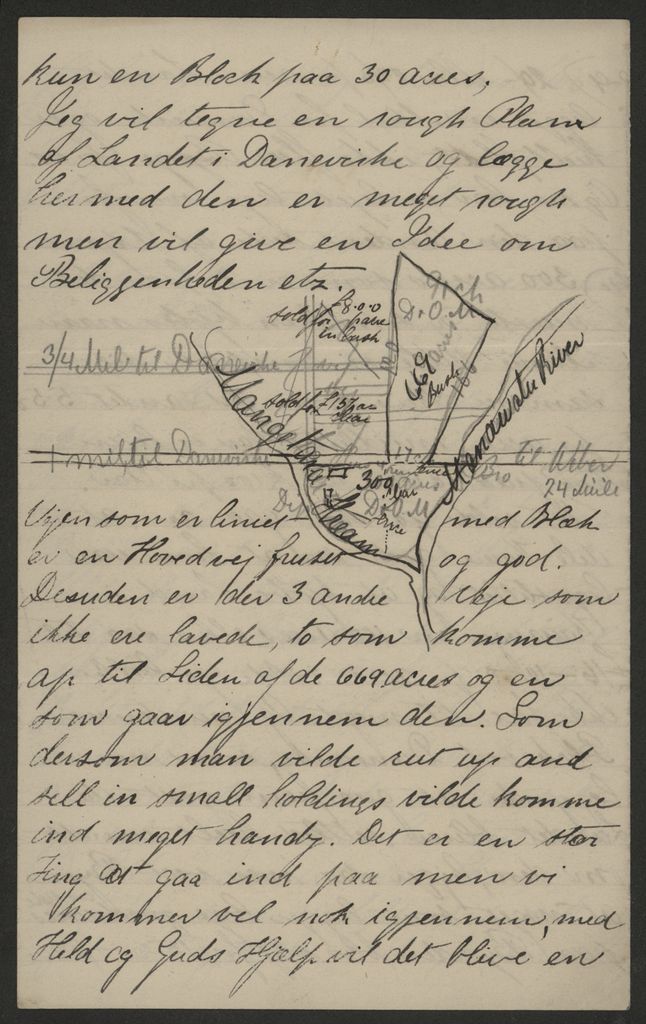 kun en Block paa 30 acres,
Jeg vil tegne en rough Plan
af Landet i Danevirke og lægge
hermed den er meget rough
men vil give en Idee om
Beliggenheden etz.
sold for £8-0-0
in bush
Dr O. M
669
Bush
3/4 Mil til Danevirke
Manawatu River
sold for £15
1 mil til Danevirke
300
Dr O. M
til
24 Mile
Stream
Vejen som er liniet med Blæk
er en Hovedvej og god.
Desuden er der 3 andre Veje som
ikke ere lavede, to som komme
op til Siden af de 669 acres og en
som gaar igjennem den. Som
dersom man vilde cut up and
sell in small holdings vilde komme
ind meget handy. Det er en stor
Ting at gaa ind paa men vi
kommer vel nok igjennem, med
Held og Guds Hjælp vil det blive en